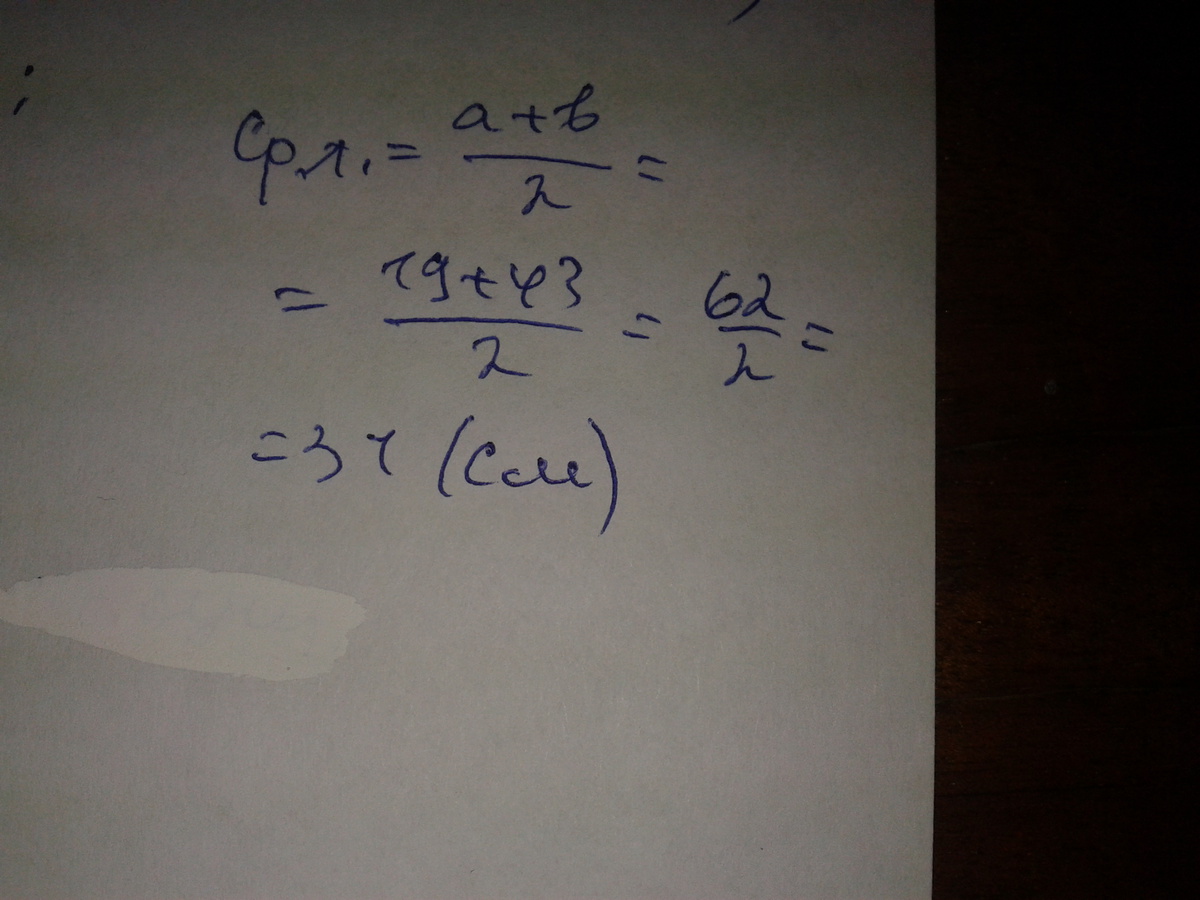 Ср.л. = a+b/2 =
= 19+43/2 = 62/2 =
=31 (см)